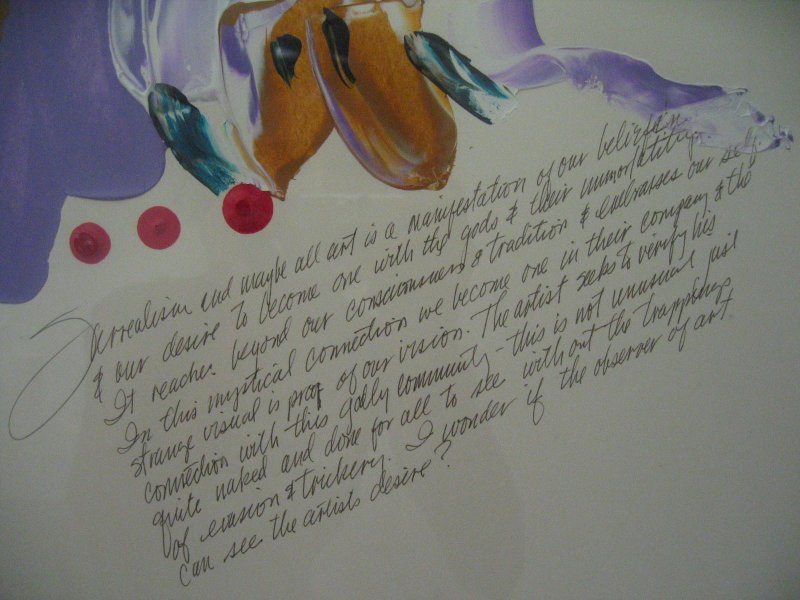 Surrealism and maybe all art is a manifestation of our beliefs in
& our desire to become one with the gods & their immortality.
It reaches beyond our consciousness & tradition & embraces our self.
In this mystical connection we become one in their company & the
strange visual is proof of our vision. The artist seeks to verify his
connection with this godly community - this is not unusual just
quite naked and done for all to see without the trappings
of evasion & trickery. I wonder if the observer of art
can see the artists desire?